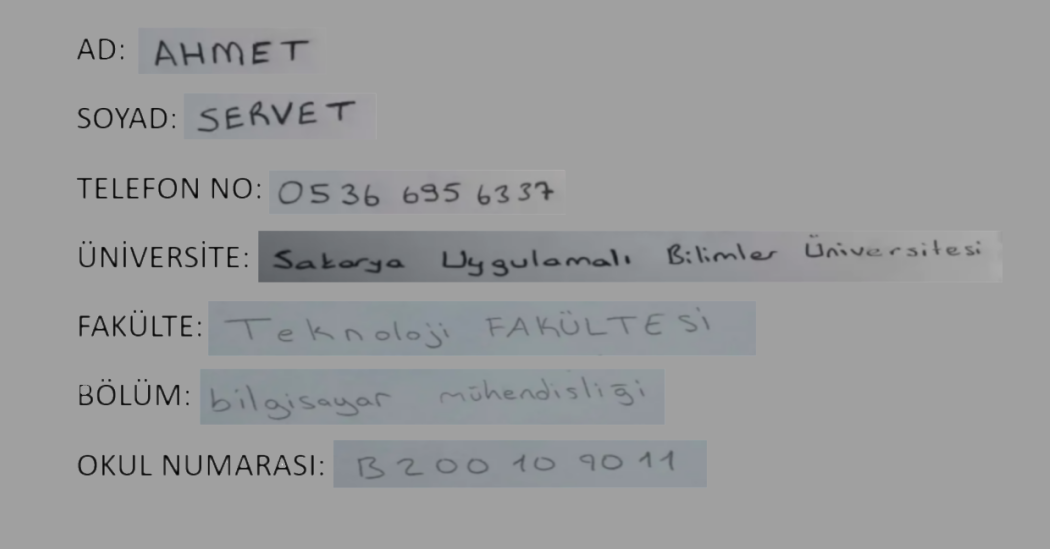 AD: AHMET
SOYAD: SERVET
TELEFON NO: 0536 695 6337
ÜNİVERSİTE: Sakarya Uygulamalı Bilimler Üniversitesi
FAKÜLTE: Teknoloji FAKÜLTESİ
BÖLÜM: bilgisayar mühendisliği
OKUL NUMARASI: B200 10 90 11